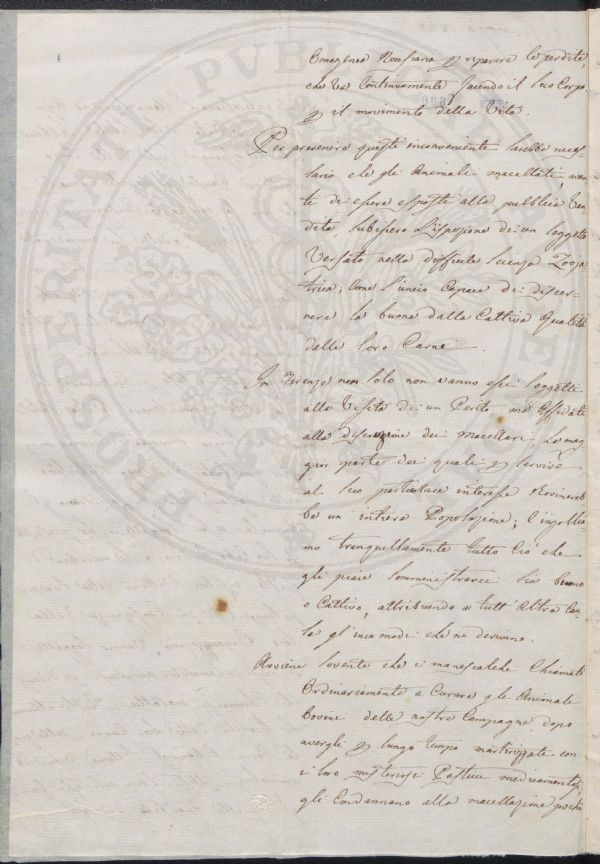 Omogenea Necessaria p riparare le perdite,
che va Continuamente facendo il suo Corpo
p il movimento della Vita.
Per prevenire questi inconvenienti sarebbe neces-
sario che gli Animali macellati, avan-
ti di essere esposti alla pubblica Ven-
dita, subissero L'ispezione di un soggetto
Versato nella difficile scienza Zooja
trica; Come l'unico Capace di discer-
nere la buona dalla Cattiva qualità
delle loro Carni.
In Firenze non solo non vanno essi soggetti
alla Visita di un Perito, ma affidati
alla discrezione dei Macellari, La mag
gior parte dei quali p servire
al suo particolare interesse Rovinereb
be un intiera Popolazione; C'ingollia-
mo tranquillamente tutto Ciò che
gli piace Somministrarci sia buono
o Cattivo, attribuendo a tutt'Altra Cau-
sa gl'incomodi che ne derivano.
Avviene sovente che i maniscalchi Chiamati
Ordinariamente a Curare gli Animali
Bovini delle nostre Campagne dopo
avergli p lungo tempo martirizzati con
i loro misteriosi Pasticci medicamentosi,
gli Condannano alla macellazione pochi
PROSPERITATI PVBLICAE